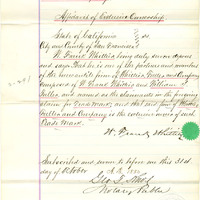 Affidavit of Exclusive Ownership.
State of California } ss.
City and County of San Francisco
W. Frank Whittier being duly sworn deposes
and says that he is one of the partners and members
of the mercantile firm of Whittier, Fuller and Company
composed of W. Frank Whittier and William
Fuller and named as the claimants in the foregoing
claim for Trade Mark; and that said firm of Whittier,
Fuller and Company are the exclusive owners of such
Trade Mark.
W. Frank Whittier
Subscribed and sworn to before me this 31st
day of October A.D.
Geo. T.
Notary Public